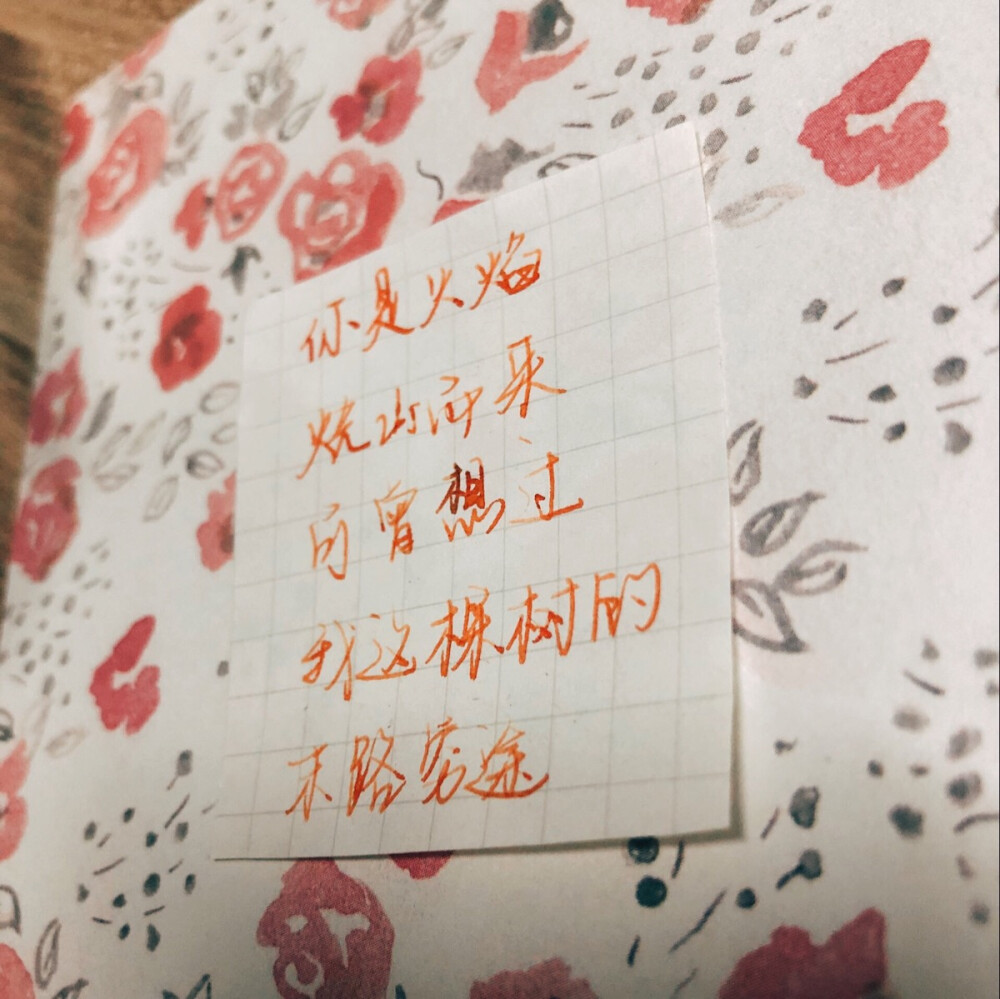 你是火焰
烧山而来
可曾想过
我这棵树的
末路穷途